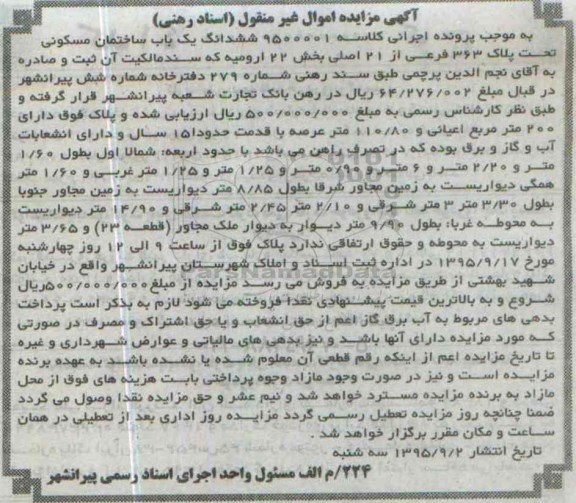 آگهی مزایده اموال غیر منقول (اسناد رهنی)
به موجب پرونده اجرائی کلاسه ۹۵۰۰۰۰۱ ششدانگ یک باب ساختمان مسکونی
تحت پلاک ۳۶۳ فرعی از ۲۱ اصلی بخش ۲۲ ارومیه که سندمالکیت آن ثبت و صادره
به آقای نجم الدین پرچمی طبق سند رهنی شماره ۲۷۹ دفترخانه شماره شش پیرانشهر
در قبال مبلغ ۶۴/۲۷۶/۰۰۲ ریال در رهن بانک تجارت شعبه پیرانشهر قرار گرفته و
طبق نظر کارشناس رسمی به مبلغ ۵۰۰/۰۰۰/۰۰۰ ریال ارزیابی شده و پلاک فوق دارای
۲۰۰ متر مربع اعیانی و ۱۱۰/۸۰ متر عرصه با قدمت حدودا۱۵ سال و دارای انشعابات
آب و گاز و برق بوده که در تصرف راهن می باشد با حدود اربعه: شمالا اول بطول ۱/۶۰
متر و ۲/۲۰ متر و ۶ متر و ۰/۹۰ متر و ۱/۲۵ متر و ۱/۲۵ متر غربی و ۱/۶۰ متر
همگی دیواریست به زمین مجاور شرقا بطول ۸/۸۵ متر دیواریست به زمین مجاور جنوبا
بطول ۳/۳۰ متر ۳ متر شرقی و ۲/۱۰ متر ۲/۴۵ متر شرقی و ۱۴/۹۰ متر دیواریست
به محوطه غربا: بطول ۹/۹۰ متر دیوار به دیوار ملک مجاور (قطعه ۲۳) و ۳/۶۵ متر
دیواریست به محوطه و حقوق ارتفاقی ندارد پلاک فوق از ساعت ۹ الی ۱۲ روز چهارشنبه
مورخ ۱۳۹۵/۹/۱۷ در اداره ثبت اسناد و املاک شهرستان پیرانشهر واقع در خیابان
شهید بهشتی از طریق مزایده به فروش می رسد مزایده از مبلغ۵۰۰/۰۰۰/۰۰۰ریال
شروع و به بالاترین قیمت پیشنهادی نقدا فروخته می شود لازم به بذکر است پرداخت
بدهی های مربوط به آب برق گاز اعم از حق انشعاب و یا حق اشتراک و مصرف در صورتی
که مورد مزایده دارای آنها باشد و نیز بدهی های مالیاتی و عوارض شهرداری و غیره
تا تاریخ مزایده اعم از اینکه رقم قطعی آن معلوم شده یا نشده باشد به عهده برنده
مزایده است و نیز در صورت وجود مازاد وجوه پرداختی بابت هزینه های فوق از محل
مازاد به برنده مزایده مسترد خواهد شد و نیم عشر و حق مزایده نقدا وصول می گردد
ضمنا چنانچه روز مزایده تعطیل رسمی گردد مزایده روز اداری بعد از تعطیلی در همان
ساعت و مکان مقرر برگزار خواهد شد .
تاریخ انتشار ۱۳۹۵/۹/۲ سه شنبه .
۲۲۴/م الف مسئول واحد اجرای اسناد رسمی پیرانشهر